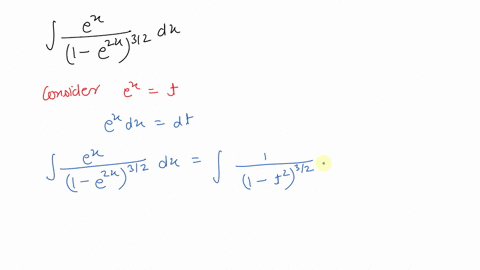 ∫ e^x / (1 - e^{2x})^{3/2} dx
Consider e^x = t
e^x dx = dt
∫ e^x / (1 - e^{2x})^{3/2} dx = ∫ 1 / (1 - t^2)^{3/2}